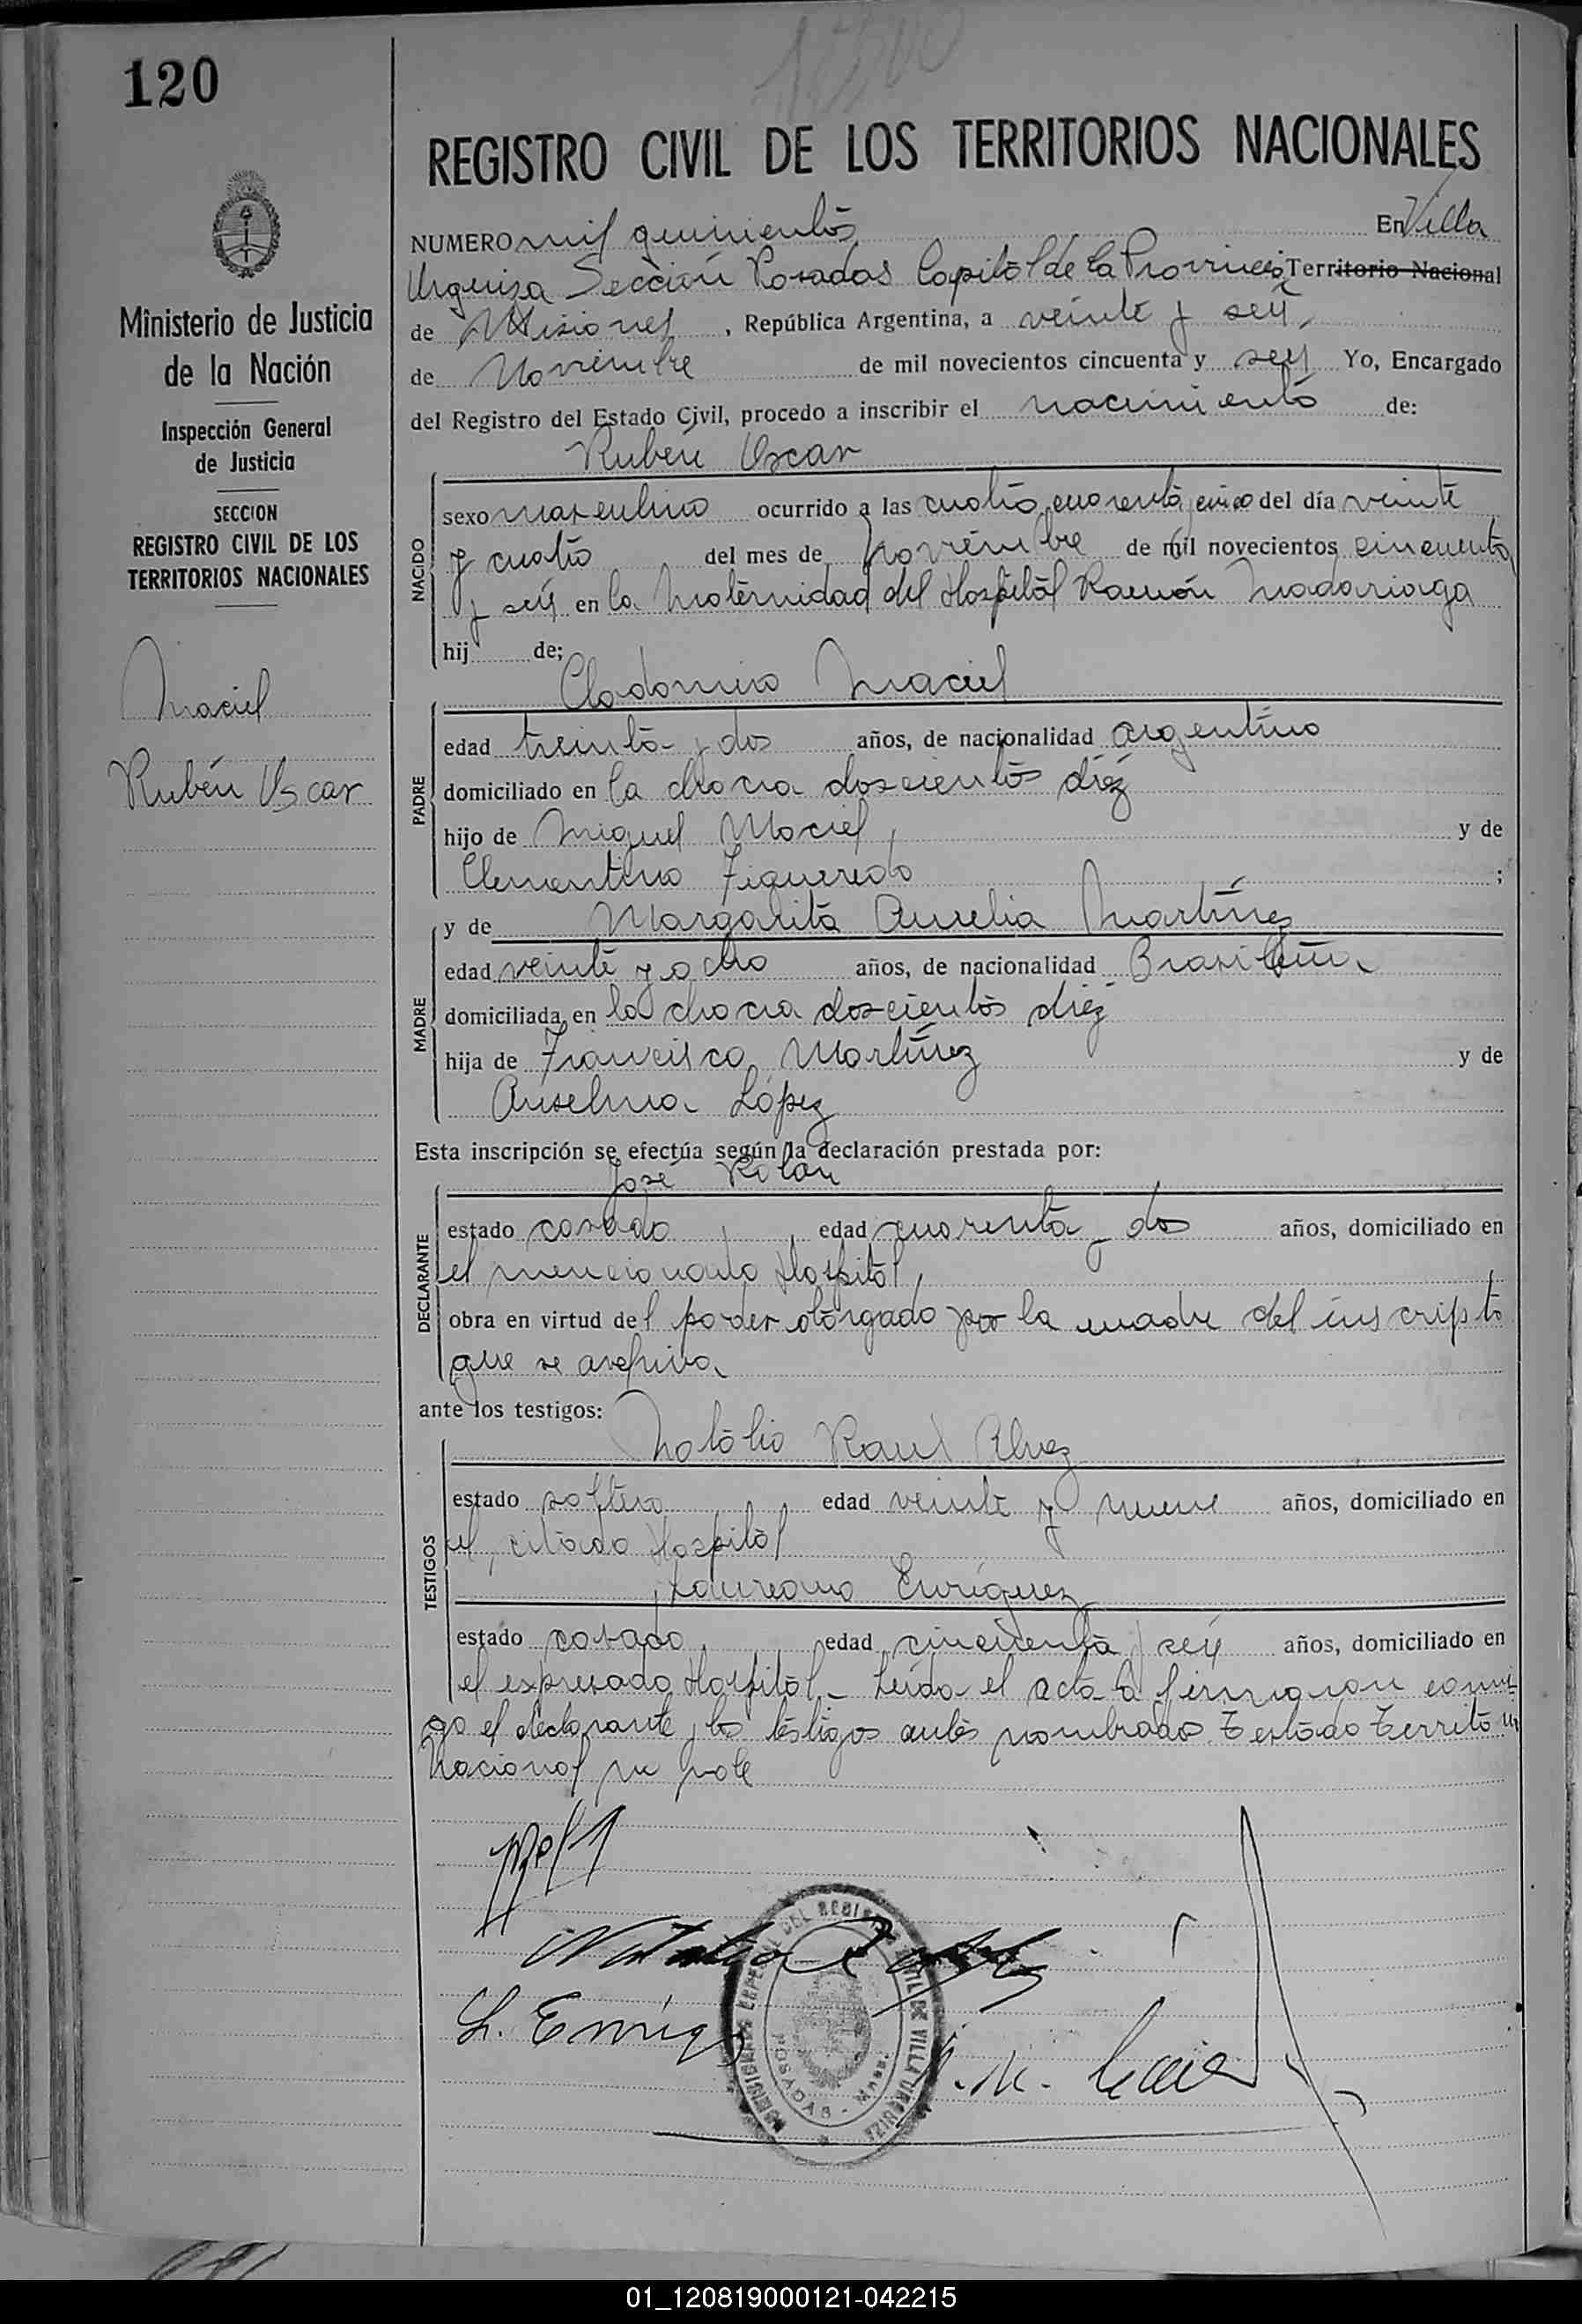 120
1500
REGISTRO CIVIL DE LOS TERRITORIOS NACIONALES
NUMERO mil quinientos En Villa
Urquiza Sección Posadas Capital de la Provincia Territorio Nacional
de Misiones, República Argentina, a veinte y seis
de Noviembre de mil novecientos cincuenta y seis Yo, Encargado
del Registro del Estado Civil, procedo a inscribir el nacimiento de:
Rubén Oscar
NACIDO
sexo masculino ocurrido a las cuatro cuarenta y cinco del día veinte
y cuatro del mes de noviembre de mil novecientos cincuenta
y seis en la Maternidad del Hospital Ramón Madariaga
hij de;
Clodomiro Maciel
PADRE
edad treinta y dos años, de nacionalidad argentino
domiciliado en la chacra doscientos diez
hijo de Miguel Maciel, y de
Clementina Figueredo ;
y de Margarita Aurelia Martínez
MADRE
edad veinte y ocho años, de nacionalidad Brasileña
domiciliada en la chacra doscientos diez
hija de Francisco Martínez y de
Anselma López
Esta inscripción se efectúa según la declaración prestada por:
José Rolan
DECLARANTE
estado casado, edad cuarenta y dos años, domiciliado en
el mencionado Hospital,
obra en virtud del poder otorgado por la madre del inscripto
que se archiva
ante los testigos:
Natalio Raul Alvez
TESTIGOS
estado soltero edad veinte y nueve años, domiciliado en
el citado Hospital
Laureano Enríquez
estado casado, edad cincuenta y seis años, domiciliado en
el expresado Hospital - Leída el acta la firmaron conmi-
go el declarante y los testigos antes nombrados. Testado Territorio
Nacional no vale
L. Enriq
DEL REGISTRO CIVIL DE VILLA URQUIZA
POSADAS - Mnes.
Ministerio de Justicia
de la Nación
Inspección General
de Justicia
SECCION
REGISTRO CIVIL DE LOS
TERRITORIOS NACIONALES
Maciel
Rubén Oscar
01_120819000121-042215